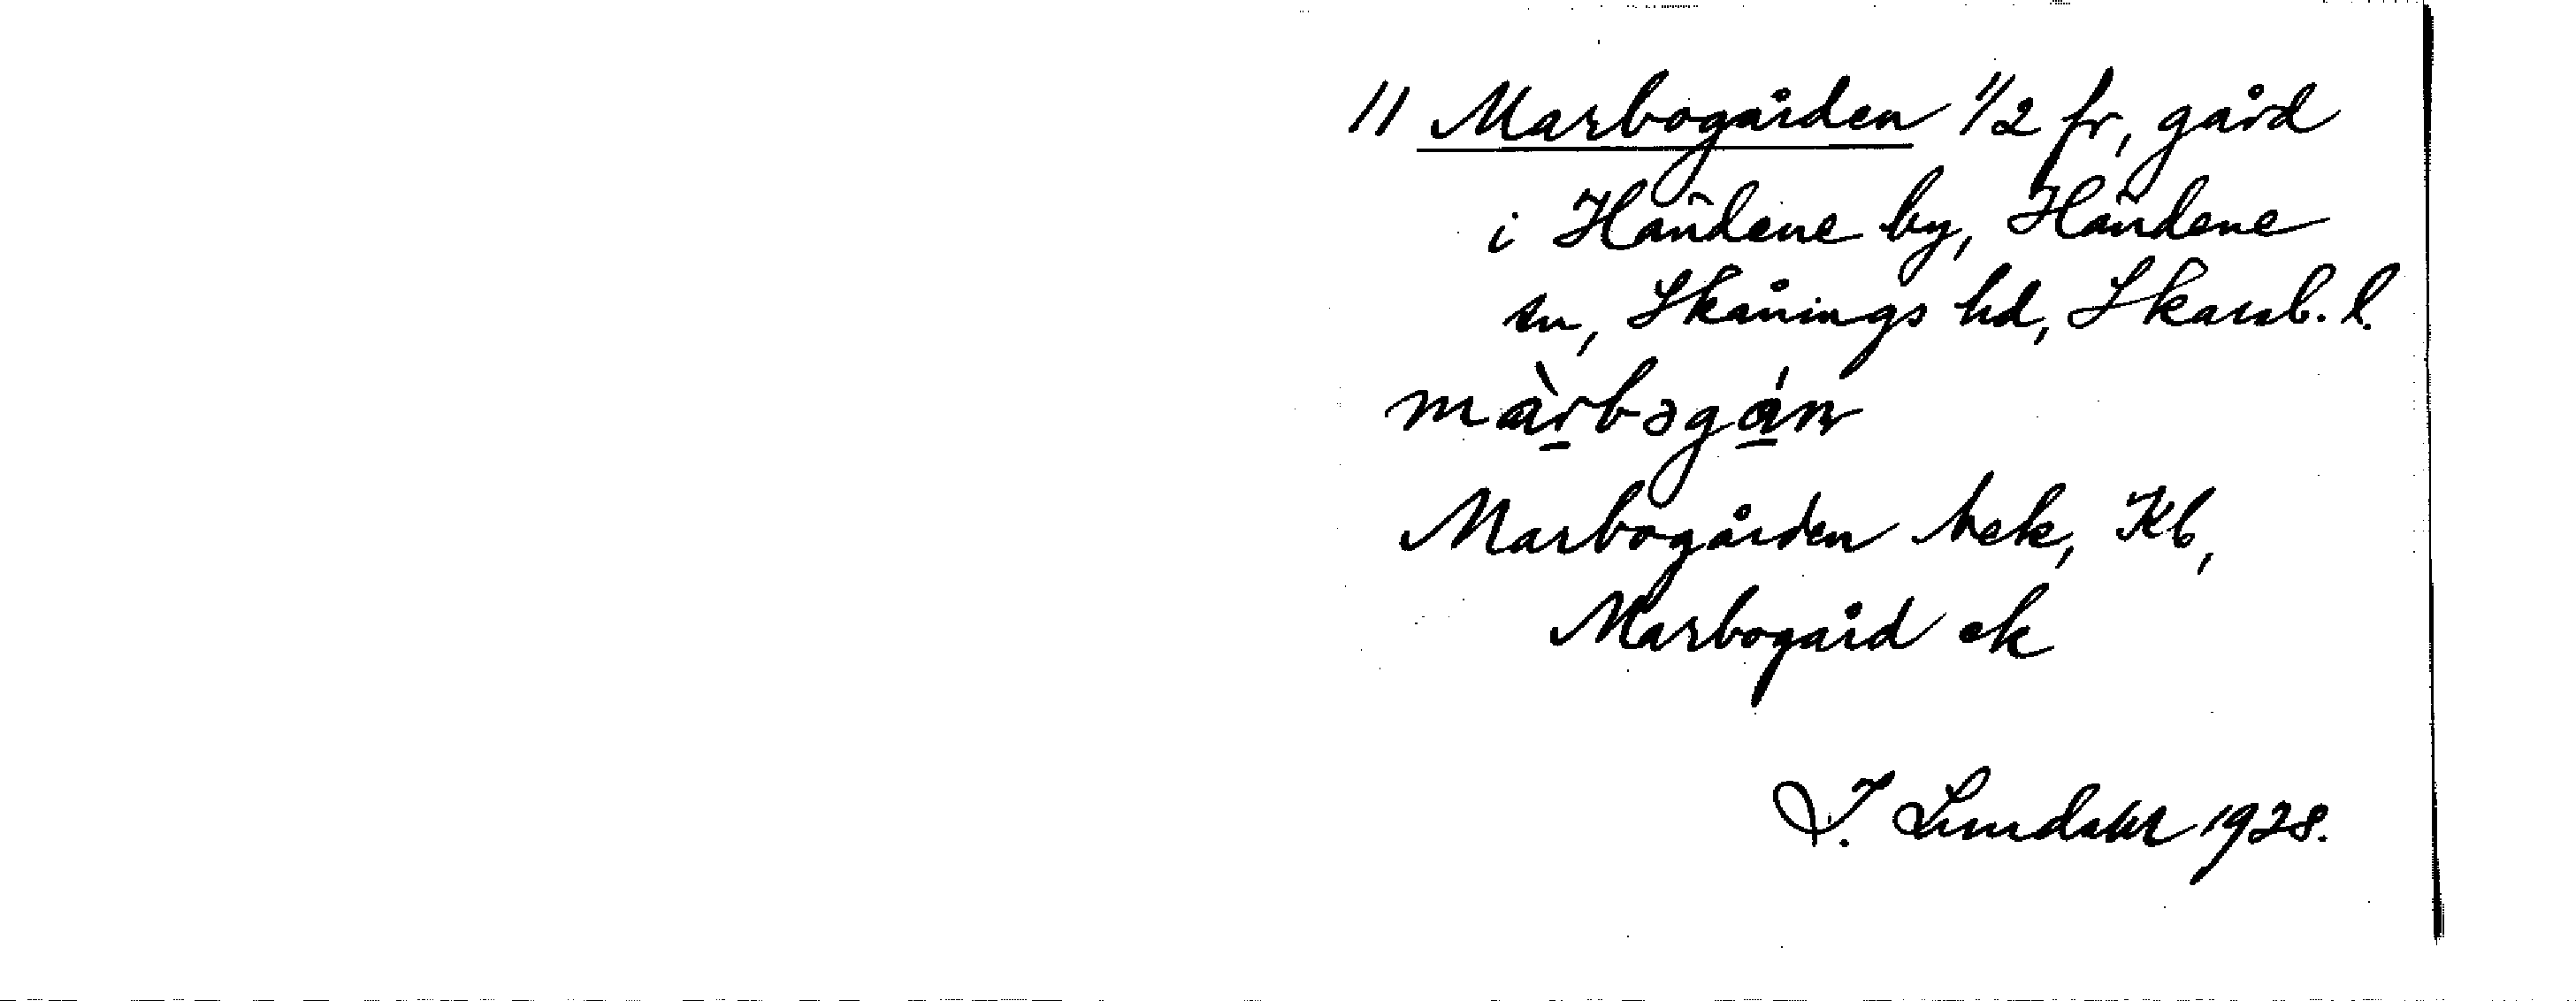 11 Marbogården 1/2 fr, gård
i Händene by, Händene
sn, Skånings hd, Skarab. l.
màrbəgán
Marbogården hek, Kb,
Marbogård ek
I. Lundahl 1928.